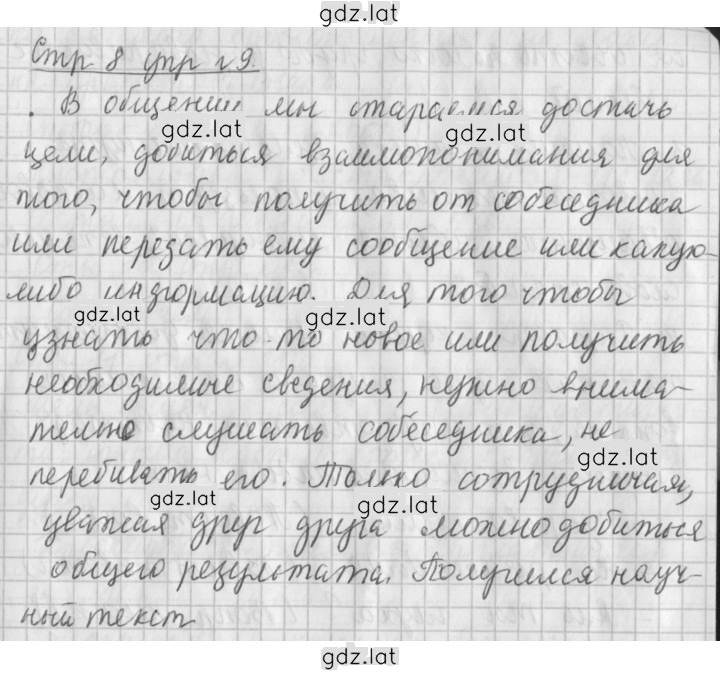 gdz.lat
Стр 8 упр г 9.
. В общении мы стараемся достачь
gdz.lat gdz.lat
цели, добиться взаимопонимания для
того, чтобы получить от собеседника
или передать ему сообщение или какую-
либо информацию. Для того чтобы
gdz.lat gdz.lat
узнать что-то новое или получить
необходимые сведения, нужно внима-
тельно слушать собеседника, не
gdz.lat
перебивать его. Только сотрудничая,
gdz.lat gdz.lat
уважая друг друга можно добиться
общего результата. Получился науч-
ный текст
gdz.lat